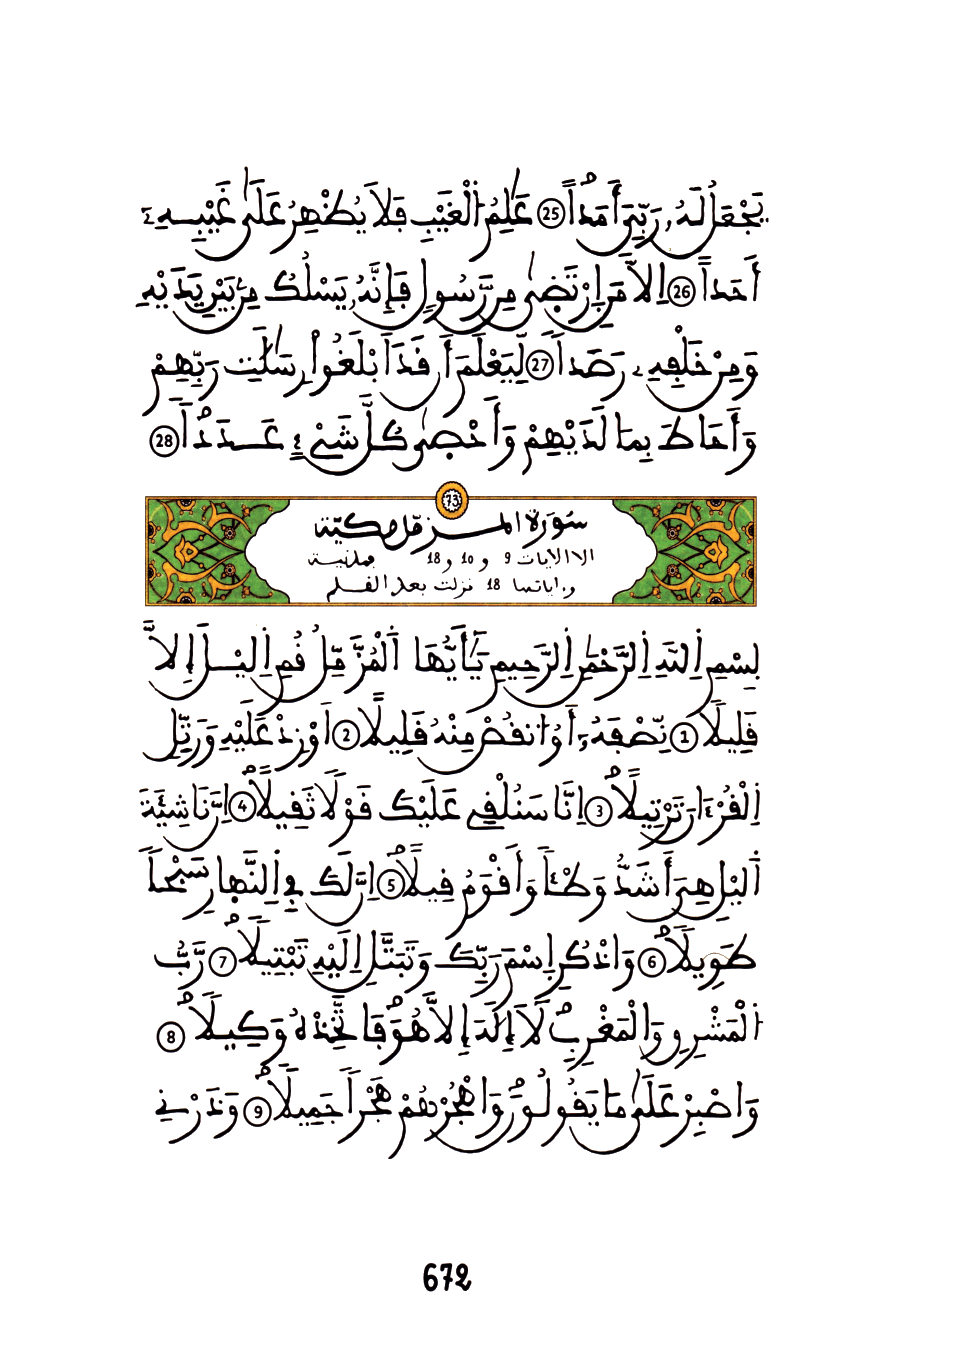 يَجْعَلُ لَهُۥ رَبِّيَ أَمَداً 25 عَٰلِمُ اُ۬لْغَيْبِ فَلَا يُظْهِرُ عَلَىٰ غَيْبِهِۦٓ
أَحَداً 26 اِلَّا مَنِ اِ۪رْتَضىٰ مِن رَّسُولٖ فَإِنَّهُۥ يَسْلُكُ مِنۢ بَيْنِ يَدَيْهِ
وَمِنْ خَلْفِهِۦ رَصَداٗ 27 لِّيَعْلَمَ أَن قَدَ اَبْلَغُواْ رِسَٰلَٰتِ رَبِّهِمْ
وَأَحَاطَ بِمَا لَدَيْهِمْ وَأَحْصىٰ كُلَّ شَےْءٍ عَدَداَۢ 28
73
سُورَةُ المُزَّمِّل مَكِّيَّة
الا الايات 9 و 10 و 18 فمدنية
وءاياتها 18 نزلت بعد القلم
بِسْمِ اِ۬للَّهِ اِ۬لرَّحْمَٰنِ اِ۬لرَّحِيمِ يَٰٓأَيُّهَا اَ۬لْمُزَّمِّلُ قُمِ اِ۬ليْلَ إِلَّا
قَلِيلاٗ 1 نِّصْفَهُۥٓ أَوُ اُ۟نقُصْ مِنْهُ قَلِيلاً 2 اَوْ زِدْ عَلَيْهِ وَرَتِّلِ
اِ۬لْقُرْءَانَ تَرْتِيلاًۖ 3 اِنَّا سَنُلْقِے عَلَيْكَ قَوْلاٗ ثَقِيلاًۖ 4 اِنَّ نَاشِئَةَ
اَ۬ليْلِ هِيَ أَشَدُّ وَطْـٔاٗ وَأَقْوَمُ قِيلاًۖ 5 اِنَّ لَكَ فِے اِ۬لنَّهارِ سَبْحاٗ
طَوِيلاٗۖ 6 وَاذْكُرِ اِ۪سْمَ رَبِّكَ وَتَبَتَّلِ اِلَيْهِ تَبْتِيلاٗۖ 7 رَّبُّ
اُ۬لْمَشْرِقِ وَالْمَغْرِبِ لَآ إِلَٰهَ إِلَّا هُوَۖ فَاتَّخِذْهُ وَكِيلاٗۖ 8
وَاصْبِرْ عَلَىٰ مَا يَقُولُونَۖ وَاهْجُرْهُمْ هَجْراٗ جَمِيلاٗۖ 9 وَذَرْنِے
672